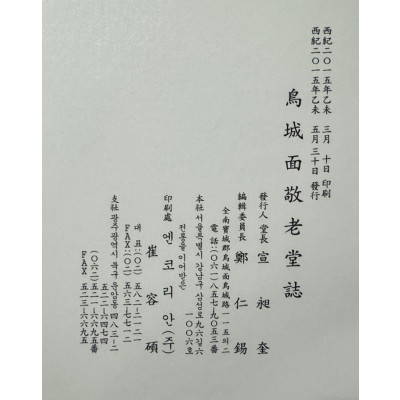 西紀二〇一五年乙未 三月 十日 印刷
西紀二〇一五年乙未 五月 三十日 發行
鳥城面敬老堂誌
發行人 堂長 宣昶奎
編輯委員長 鄭仁錫
全南寶城郡鳥城面鳥城路 一一五의二
電話:〇六一)八五七-九〇五三番
本社 서울특별시 강남구 삼성로 九六길 六
一〇〇六호
전통을 이어받은
印刷處 엔코리안(주)
崔容碩
대표:(〇二)
FAX:(〇二)五六三-七七一二
支社 광주광역시 북구 운암동 四八三-二
(〇六二)五二一-六六九五番
五二二-六四七四
FAX 五二三-六六九五